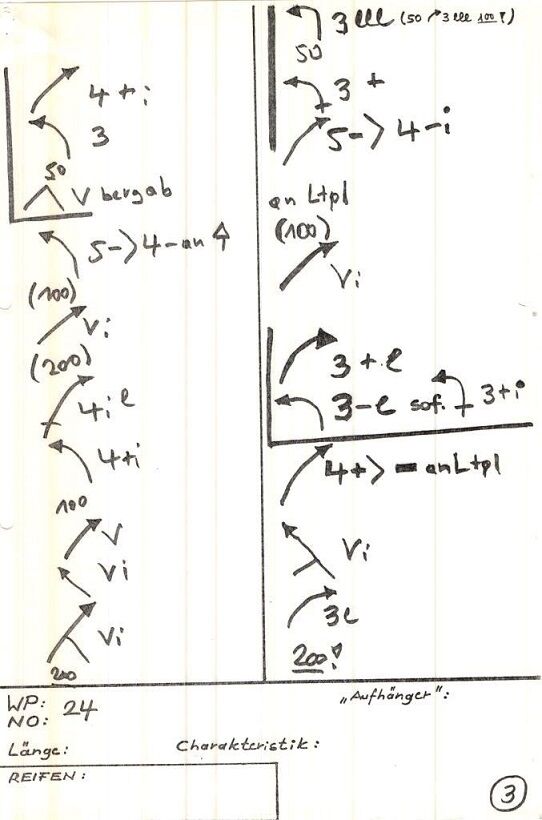 4+i
3
50
V bergab
5-> 4- an
(100)
Vi
(200)
4i e
4+i
100
V
Vi
Vi
200
3 lll (50 3 lll 100!)
50
3+
5-> 4-i
an Ltpl
(100)
Vi
3+e
3-e sof. 3+i
4+> - an Ltpl
Vi
3e
200!
WP:
NO: 24
„Aufhänger":
Länge:
Charakteristik:
REIFEN:
3